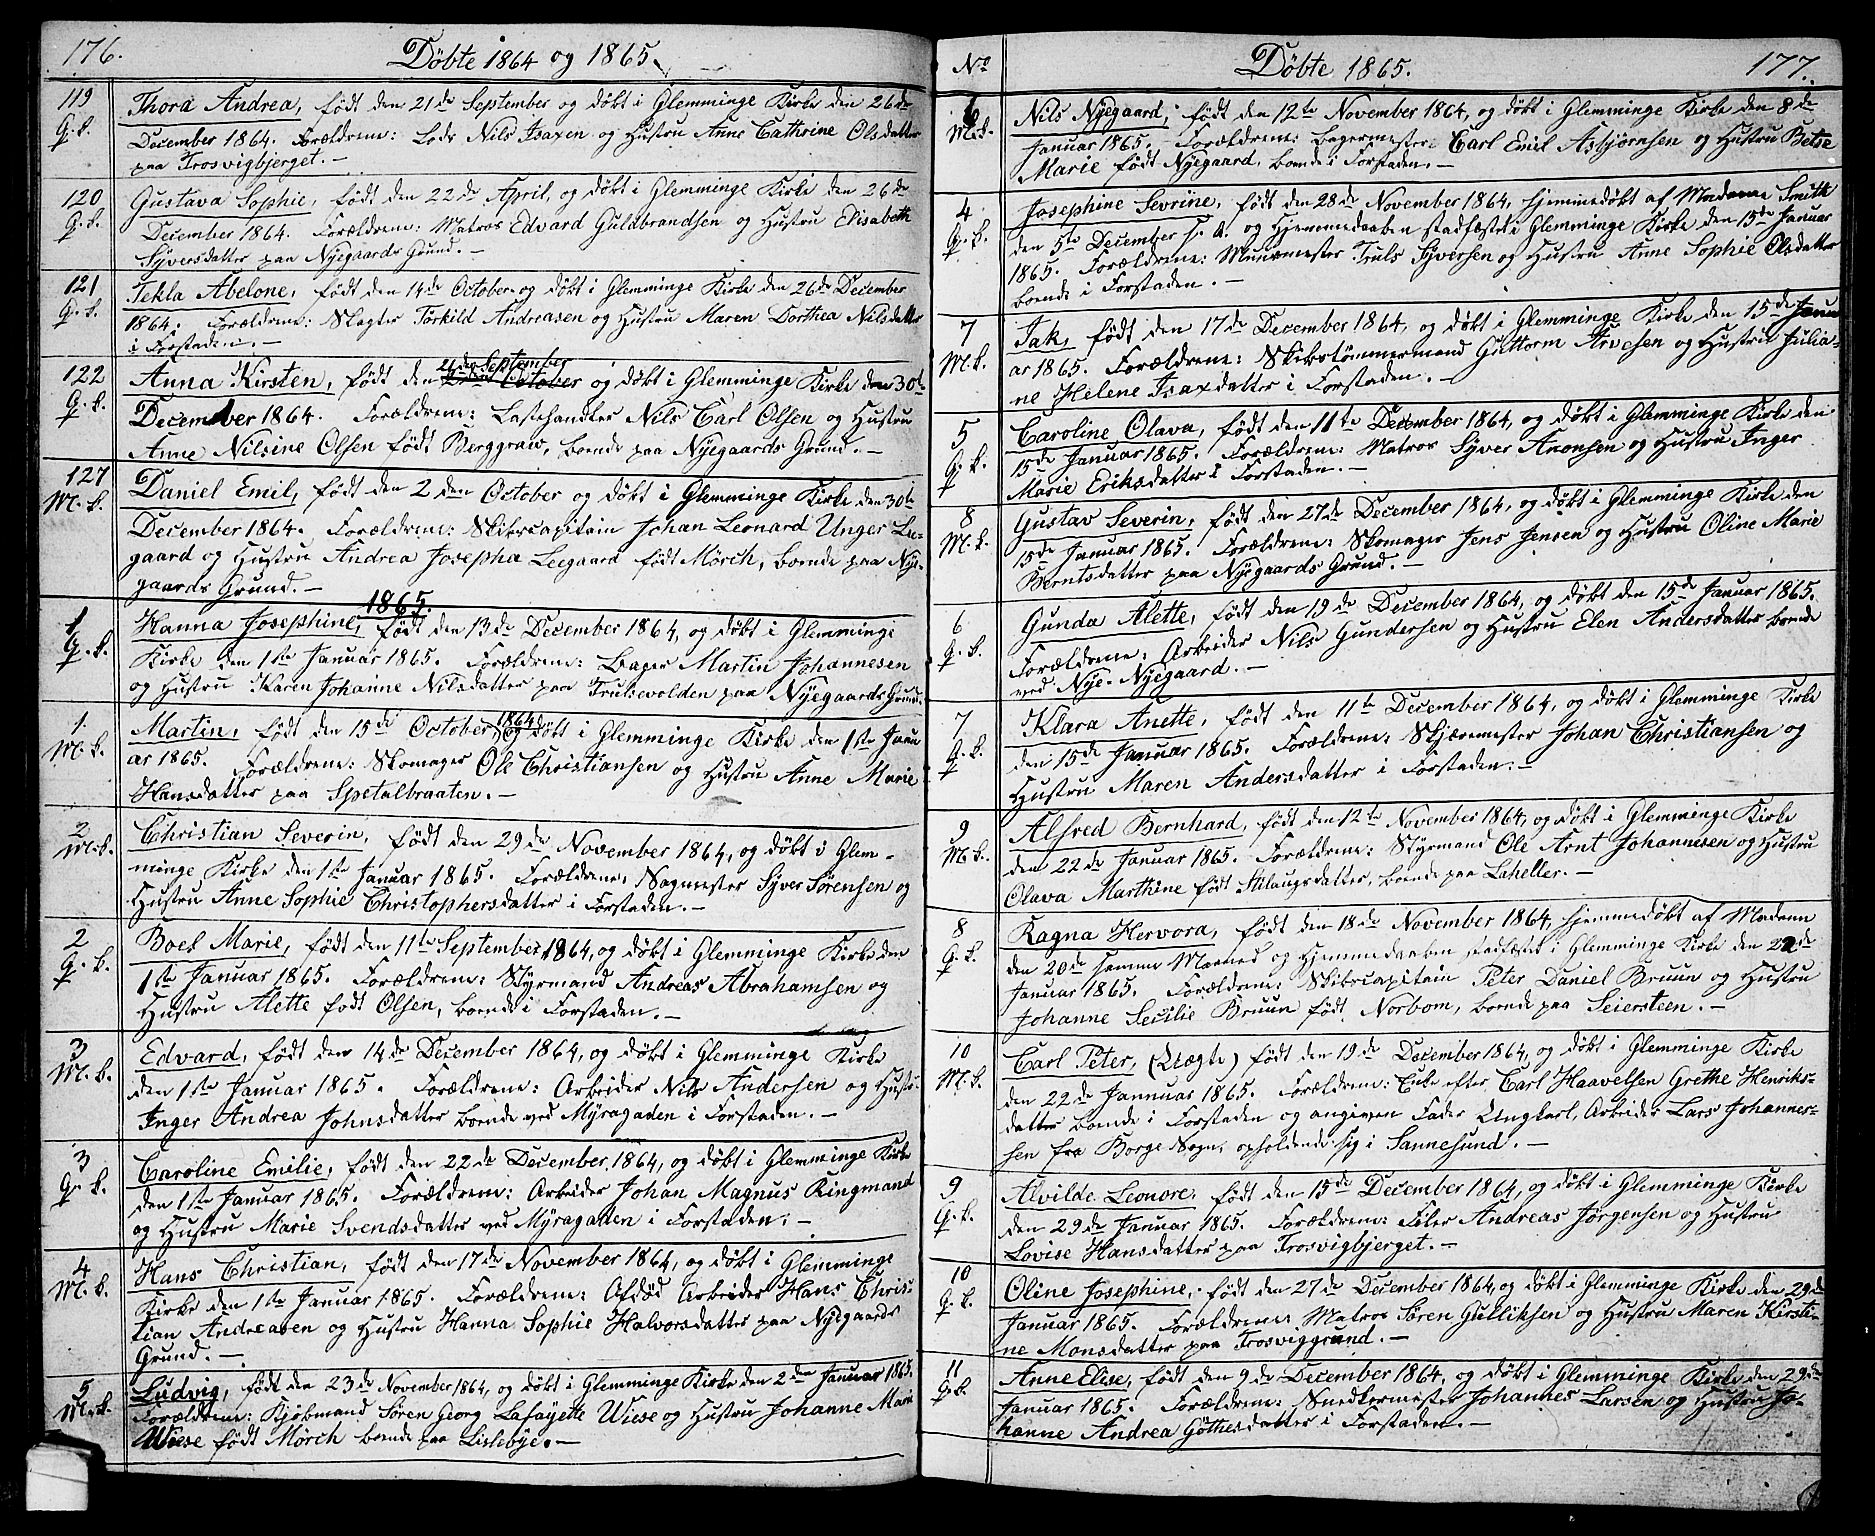 176.
Döbte 1864 og 1865.
119
Thora Andrea, født den 21de September og døbt i Glemminge Kirke den 26de
December 1864. Forældrene: Lods Nils Isaxen og Hustru Anne Cathrine Olsdatter
paa Trosvigbjerget. —
120
Gustava Sophie, født den 22de April, og døbt i Glemminge Kirke den 26de
December 1864. Forældrene: Matros Edvard Guldbrandsen og Hustru Elisabeth
Syversdatter paa Nyegaards Grund. —
121
Tekla Abelone, født den 14de October og døbt i Glemminge Kirke den 26de December
1864. Forældrene: Slagter Törkild Andreasen og Hustru Maren Dorthea Nilsdatter
i Forstaden. —
122
21de September
Anna Kirsten, født den October og døbt i Glemminge Kirke den 30te
December 1864. Forældrene: Lastehandler Nils Carl Olsen og Hustru
Anne Nilsine Olsen født Berggraw, boende paa Nyegaards Grund. —
127
M. k.
Daniel Emil, født den 2den October og døbt i Glemminge Kirke den 30te
December 1864. Forældrene: Skibscapitain Johan Leonard Unger Lee-
gaard og Hustru Andrea Josepha Leegaard født Mörch, boende paa Nye-
gaards Grund. —
1865.
1
Hanna Josephine, født den 13de December 1864, og døbt i Glemminge
Kirke den 1ste Januar 1865. Forældrene: Bager Martin Johannesen
og Hustru Karen Johanne Nilsdatter paa Trulsevolden paa Nyegaards Grund.
1.
M. k.
1864
Martin, født den 15de October, og døbt i Glemminge Kirke den 1ste Janu
ar 1865. Forældrene: Skomager Ole Christiansen og Hustru Anne Marie
Hansdatter paa Spetalbraaten. —
2
M. k.
Christian Severin, født den 29de November 1864, og døbt i Glem-
minge Kirke den 1ste Januar 1865. Forældrene: Sagmester Syver Sörensen og
Hustru Anne Sophie Christophersdatter i Forstaden. —
2
Boel Marie, født den 11te September 1864, og døbt i Glemminge Kirke den
1ste Januar 1865. Forældrene: Styrmand Andreas Abrahamsen og
Hustru Alette født Olsen, boende i Forstaden. —
3
M. k.
Edvard, født den 14de December 1864, og døbt i Glemminge Kirke
den 1ste Januar 1865. Forældrene: Arbeider Nils Andersen og Hustru
Inger Andrea Johnsdatter boende ved Myragaden i Forstaden. —
3
Caroline Emilie, født den 22de December 1864, og døbt i Glemminge Kirke
den 1ste Januar 1865. Forældrene: Arbeider Johan Magnus Ringmand
og Hustru Marie Svendsdatter ved Myragaden i Forstaden. —
4
M. k.
Hans Christian, født den 17de November 1864, og døbt i Glemminge
Kirke den 1ste Januar 1865. Forældrene: Afdöd Arbeider Hans Chris-
tian Andreasen og Hustru Hanna Sophie Halvorsdatter paa Nyegaards
Grund. —
5
M. k.
Ludvig, født den 23de November 1864, og døbt i Glemminge Kirke den 2den Januar 1865.
Forældrene: Kjøbmand Sören Georg Lafayette Wiese og Hustru Johanne Marie
Wiese født Mörch boende paa Lislebye. —
No
Döbte 1865.
177.
6
M. k.
Nils Nyegaard, født den 12te November 1864, og døbt i Glemminge Kirke den 8de
Januar 1865. Forældrene: Bagermester Carl Emil Asbjørnsen og Hustru Betse
Marie født Nyegaard, boende i Forstaden. —
4
Josephine Sevrine, født den 28de November 1864, hjemmedøbt af Madame Smith
den 5te December s. A. og Hjemmedaaben stadfæstet i Glemminge Kirke den 15de Januar
1865. Forældrene: Muurmester Truls Syversen og Hustru Anne Sophie Olsdatter
boende i Forstaden. —
7
M. k.
Jak, født den 17de December 1864, og døbt i Glemminge Kirke den 15de Janu
ar 1865. Forældrene: Skibstømmermand Guttorm Arvesen og Hustru Julia-
ne Helene Isaxdatter i Forstaden. —
5
Caroline Olava, født den 11te December 1864, og døbt i Glemminge Kirke den
15de Januar 1865. Forældrene: Matros Syver Anonsen og Hustru Inger
Marie Eriksdatter i Forstaden. —
8
M. k.
Gustav Severin, født den 27de December 1864, og døbt i Glemminge Kirke den
15de Januar 1865. Forældrene: Skomager Jens Jensen og Hustru Oline Marie
Berntsdatter paa Nyegaards Grund. —
6
Gunda Alette, født den 19de December 1864, og døbt den 15de Januar 1865.
Forældrene: Arbeider Nils Gundersen og Hustru Elen Andersdatter boende
ved Nye-Nyegaard. —
7
Klara Anette, født den 11te December 1864, og døbt i Glemminge Kirke
den 15de Januar 1865. Forældrene: Skjæremester Johan Christiansen og
Hustru Maren Andersdatter i Forstaden. —
9
M. k.
Alfred Bernhard, født den 12te November 1864, og døbt i Glemminge Kirke
den 22de Januar 1865. Forældrene: Styrmand Ole Arnt Johannesen og Hustru
Olava Marthine født Stilaugsdatter, boende paa Laheller. —
8
Ragna Hervora, født den 18de November 1864, hjemmedøbt af Madam
den 20de samme Maaned og Hjemmedaaben stadfæstet i Glemminge Kirke den 22de
Januar 1865. Forældrene: Skibscapitain Peter Daniel Bruun og Hustru
Johanne Secilie Bruun født Norbom, boende paa Seiersteen. —
10
M. k.
Carl Peter, (Uægte) født den 19de December 1864, og døbt i Glemminge Kirke
den 22de Januar 1865. Forældrene: Enke efter Carl Haavelsen Grethe Henriks-
datter boende i Forstaden og angiven Fader Ungkarl, Arbeider Lars Johannes-
sen fra Borge Sogn, opholdende sig i Sannesund. —
9
Alvilde Leonore, født den 15de December 1864, og døbt i Glemminge Kirke
den 29de Januar 1865. Forældrene: Feler Andreas Jörgensen og Hustru
Lovise Hansdatter paa Trosvigbjerget. —
10
Oline Josephine, født den 27de December 1864, og døbt i Glemminge Kirke den 29de
Januar 1865. Forældrene: Matros Sören Gulliksen og Hustru Maren Kirsti-
ne Monsdatter paa Trosviggrund. —
11
Anne Elise, født den 9de December 1864, og døbt i Glemminge Kirke den 29de
Januar 1865. Forældrene: Snedkermester Johannes Larsen og Hustru Jo-
hanne Andrea Göthesdatter i Forstaden. —